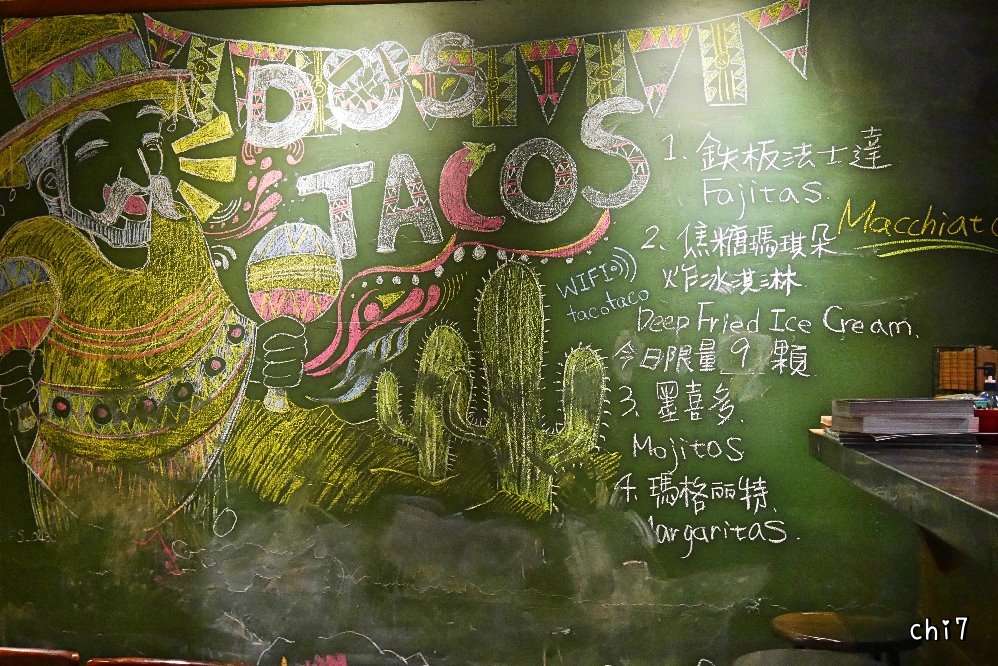 DOS
TACOS
WIFI
tacotaco
1. 鉄板法士達
Fajitas.
2. 焦糖瑪琪朵
Macchiato
炸冰淇淋
Deep Fried Ice Cream.
今日限量 9 顆
3. 墨喜多
Mojitos
4. 瑪格麗特
Margaritas.
chi7